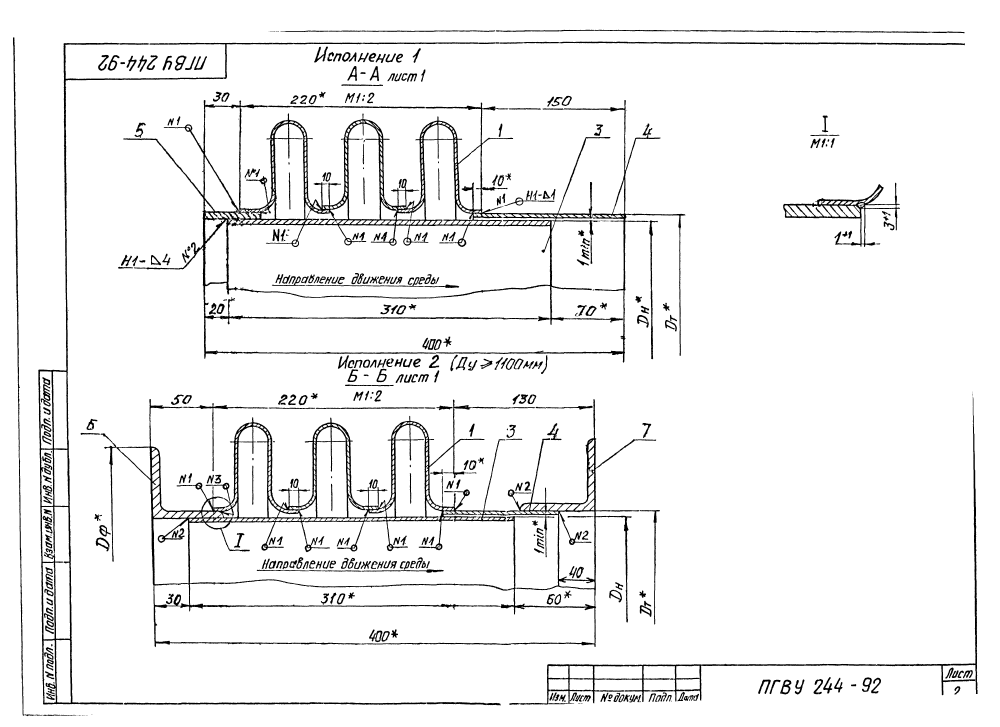 ПГВУ 244-92
Исполнение 1
А-А лист 1
М1:2
30
220*
150
5
N1
N1
10
10
1
3
4
10*
N1
Н1-△1
I
М1:1
3+1
1+1
Н1-△4
N2
N1
N1
N1
N1
N1
1 min*
Направление движения среды
20
310*
70*
Dн*
Dт*
400*
Исполнение 2 (Ду ≥ 1100 мм)
Б-Б лист 1
М1:2
50
220*
130
Б
N1
N3
10
10
1
3
4
7
10*
N1
N2
Dф*
N2
I
N1
N1
N1
N1
N1
1 min*
N2
Направление движения среды
40
30
310*
60*
Dн
Dт*
400*
Инв. N подл.
Подп. и дата
Взам. инв. N
Инв. N дубл.
Подп. и дата
Изм.
Лист
№ докум.
Подп.
Дата
ПГВУ 244-92
Лист
2